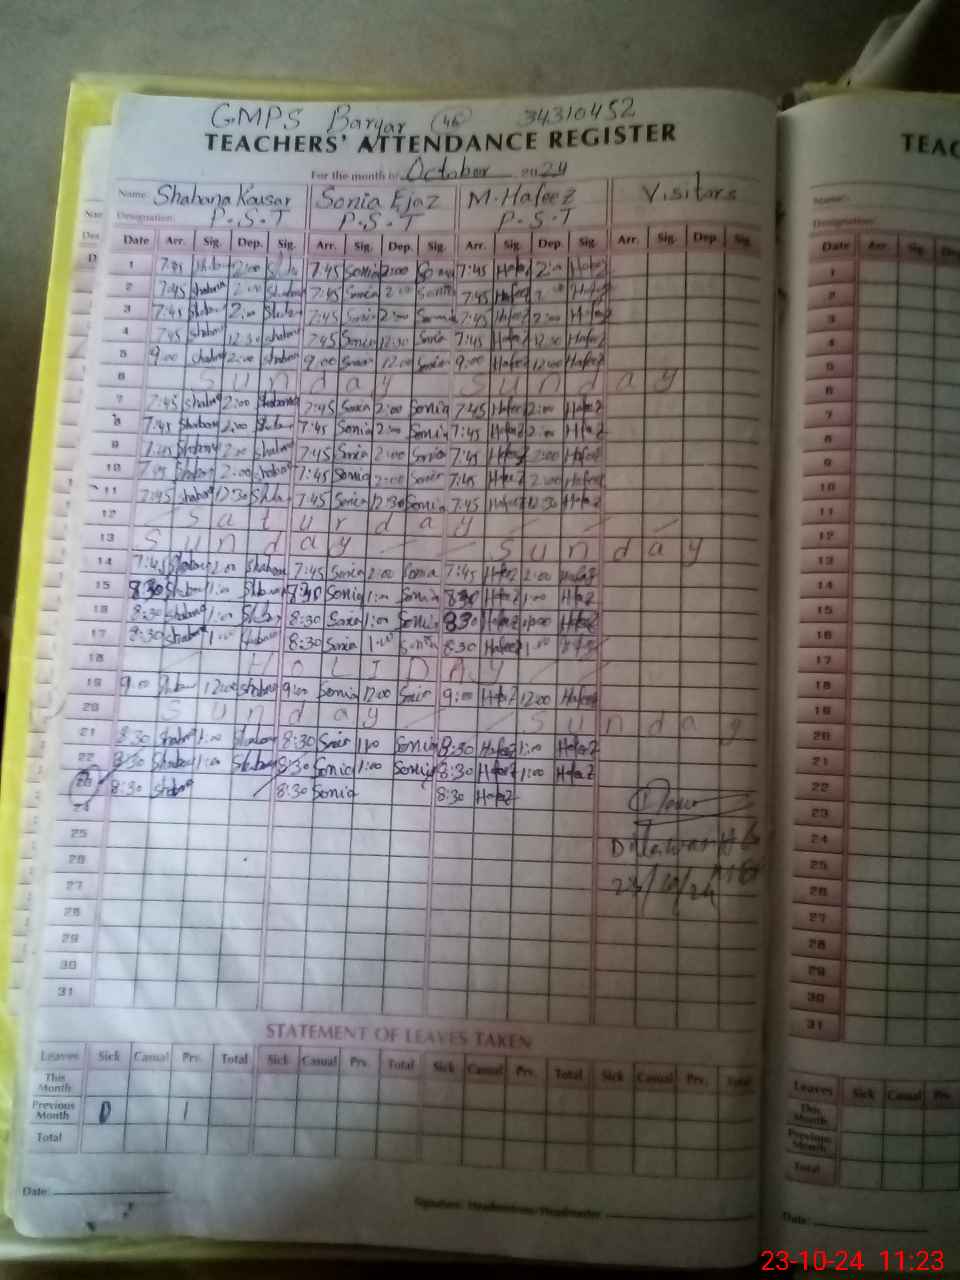 GMPS Baryar (46) 34310452
TEACHERS' ATTENDANCE REGISTER
TEAC
For the month of October 2024
Name: Shabana Kausar Sonia Ejaz M.Hafeez Visitars
Name:
Designation: P.S.T P.S.T P.S.T
Designation:
Date Arr. Sig. Dep. Sig. Arr. Sig. Dep. Sig. Arr. Sig. Dep. Sig. Arr. Sig. Dep. Sig.
Date Arr. Sig.
1 7:45 2:00 7:45 Sonia 2:00 Sonia 7:45 Hafeez 2:00 Hafeez
2 7:45 Shabana 2:00 Shabana 7:45 Sonia 2:00 Sonia 7:45 Hafeez Hafeez
3 7:45 2:00 7:45 Sonia 2:00 Sonia 7:45 Hafeez 2:00 Hafeez
4 7:45 Shabana 12:30 Shabana 7:45 Sonia 12:30 Sonia 7:45 Hafeez 12:30 Hafeez
5 9:00 Shabana 12:00 Shabana 9:00 Sonia 12:00 Sonia 9:00 Hafeez 12:00 Hafeez
6 Sunday Sunday
7 7:45 Shabana 2:00 Shabana 7:45 Sonia 2:00 Sonia 7:45 Hafeez 2:00 Hafeez
8 7:45 Shabana 2:00 7:45 Sonia 2:00 Sonia 7:45 Hafeez 2:00 Hafeez
9 7:45 Shabana 2:00 Shabana 7:45 Sonia 2:00 Sonia 7:45 Hafeez 2:00 Hafeez
10 7:45 Shabana 2:00 Shabana 7:45 Sonia 2:00 Sonia 7:45 Hafeez 2:00 Hafeez
11 7:45 Shabana 12:30 7:45 Sonia 12:30 Sonia 7:45 Hafeez 12:30 Hafeez
12 Saturday
13 Sunday Sunday
14 7:45 Shabana 2:00 Shabana 7:45 Sonia 2:00 Sonia 7:45 Hafeez 2:00 Hafeez
15 8:30 Shabana 1:00 Shabana Sonia 1:00 Sonia 8:30 Hafeez 1:00 Hafeez
16 8:30 Shabana 1:00 8:30 Sonia 1:00 Sonia 8:30 Hafeez 1:00 Hafeez
17 8:30 Shabana 1:00 Shabana 8:30 Sonia 1:00 Sonia 8:30 Hafeez 1:00
18 HOLIDAY
19 9:00 12:00 Shabana 9:00 Sonia 12:00 Sonia 9:00 Hafeez 12:00 Hafeez
20 Sunday Sunday
21 8:30 Shabana 1:00 Shabana 8:30 Sonia 1:00 Sonia 8:30 Hafeez 1:00 Hafeez
22 8:30 Shabana 1:00 Shabana 8:30 Sonia 1:00 Sonia 8:30 Hafeez 1:00 Hafeez
23 8:30 Shabana 8:30 Sonia 8:30 Hafeez
24
25
26
27
28
29
30
31
1
2
3
4
5
6
7
8
9
10
11
12
13
14
15
16
17
18
19
20
21
22
23
24
25
26
27
28
29
30
31
STATEMENT OF LEAVES TAKEN
Leaves Sick Casual Prv. Total Sick Casual Prv. Total Sick Casual Prv. Total Sick Casual Prv. Total
Leaves Sick Casual Prv.
This Month
This Month
Previous Month 0 1
Previous Month
Total
Total
Date:
Date:
23-10-24 11:23